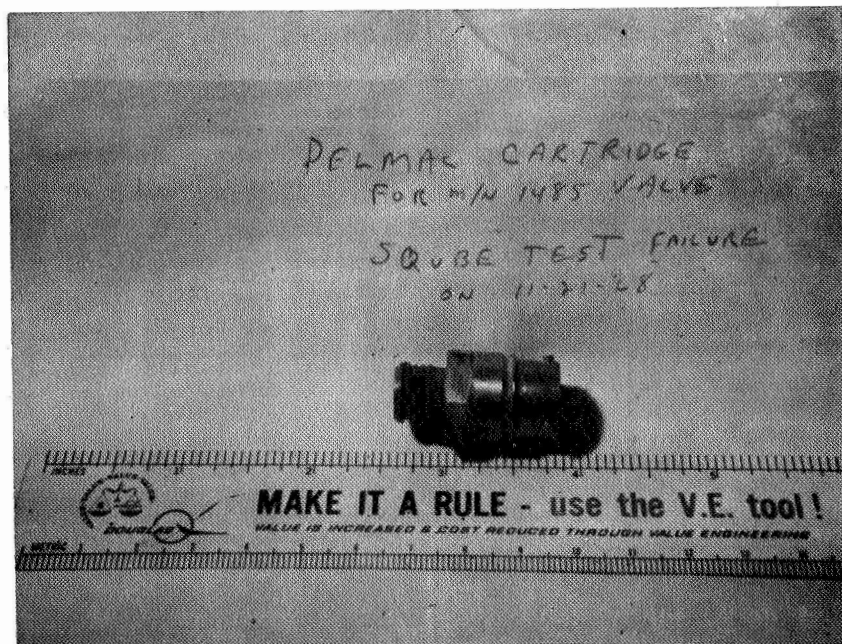 PELMAC CARTRIDGE
FOR M/N 1485 VALVE
SQUBE TEST FAILURE
ON 11-21-68
INCHES 1 2 3 4 5
MAKE IT A RULE - use the V.E. tool!
DOUGLAS
VALUE IS INCREASED & COST REDUCED THROUGH VALUE ENGINEERING
METRIC 1 2 3 4 5 6 7 8 9 10 11 12 13 14